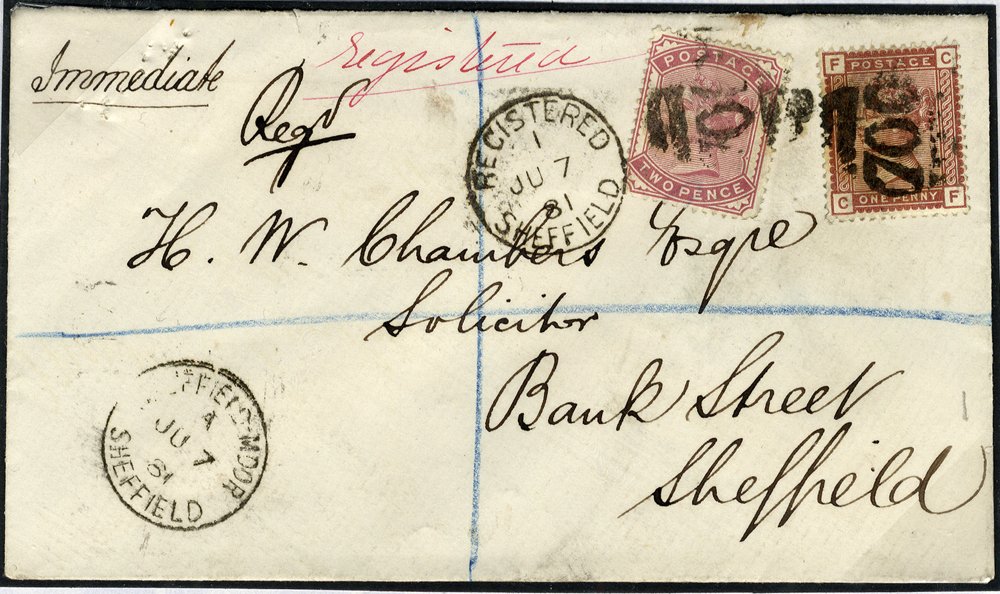 Immediate
Registered
Regd
REGISTERED
1
JU 7
81
SHEFFIELD
POSTAGE
TWO PENCE
F POSTAGE C
C ONE PENNY F
700
H. W. Chambers Esqre
Solicitor
Bank Street
Sheffield
SHEFFIELD-MOOR
A
JU 7
81
SHEFFIELD